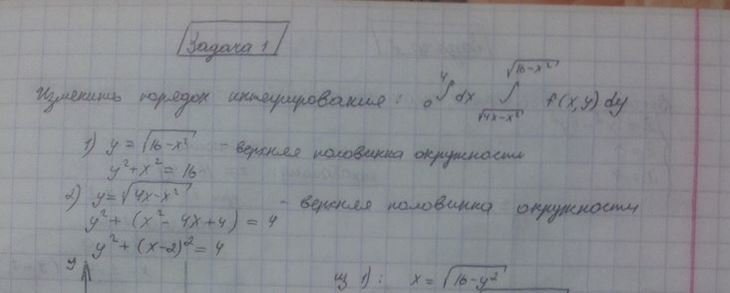 Задача 1
Изменить порядок интегрирования: ₀∫⁴ dx ∫_{√(4x-x²)}^{√(16-x²)} f(x,y) dy
1) y = √(16-x²) - верхняя половинка окружности
y² + x² = 16
2) y = √(4x-x²) - верхняя половинка окружности
y² + (x² - 4x + 4) = 4
y² + (x-2)² = 4
y
из 1): x = √(16-y²)